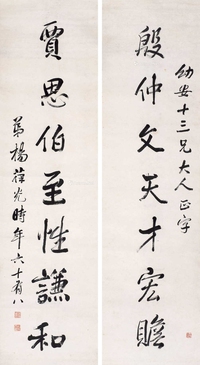 幼安十三兄大人正字
殷仲文天才宏贍
賈思伯至性謙和
弟楊葆光時年六十有八